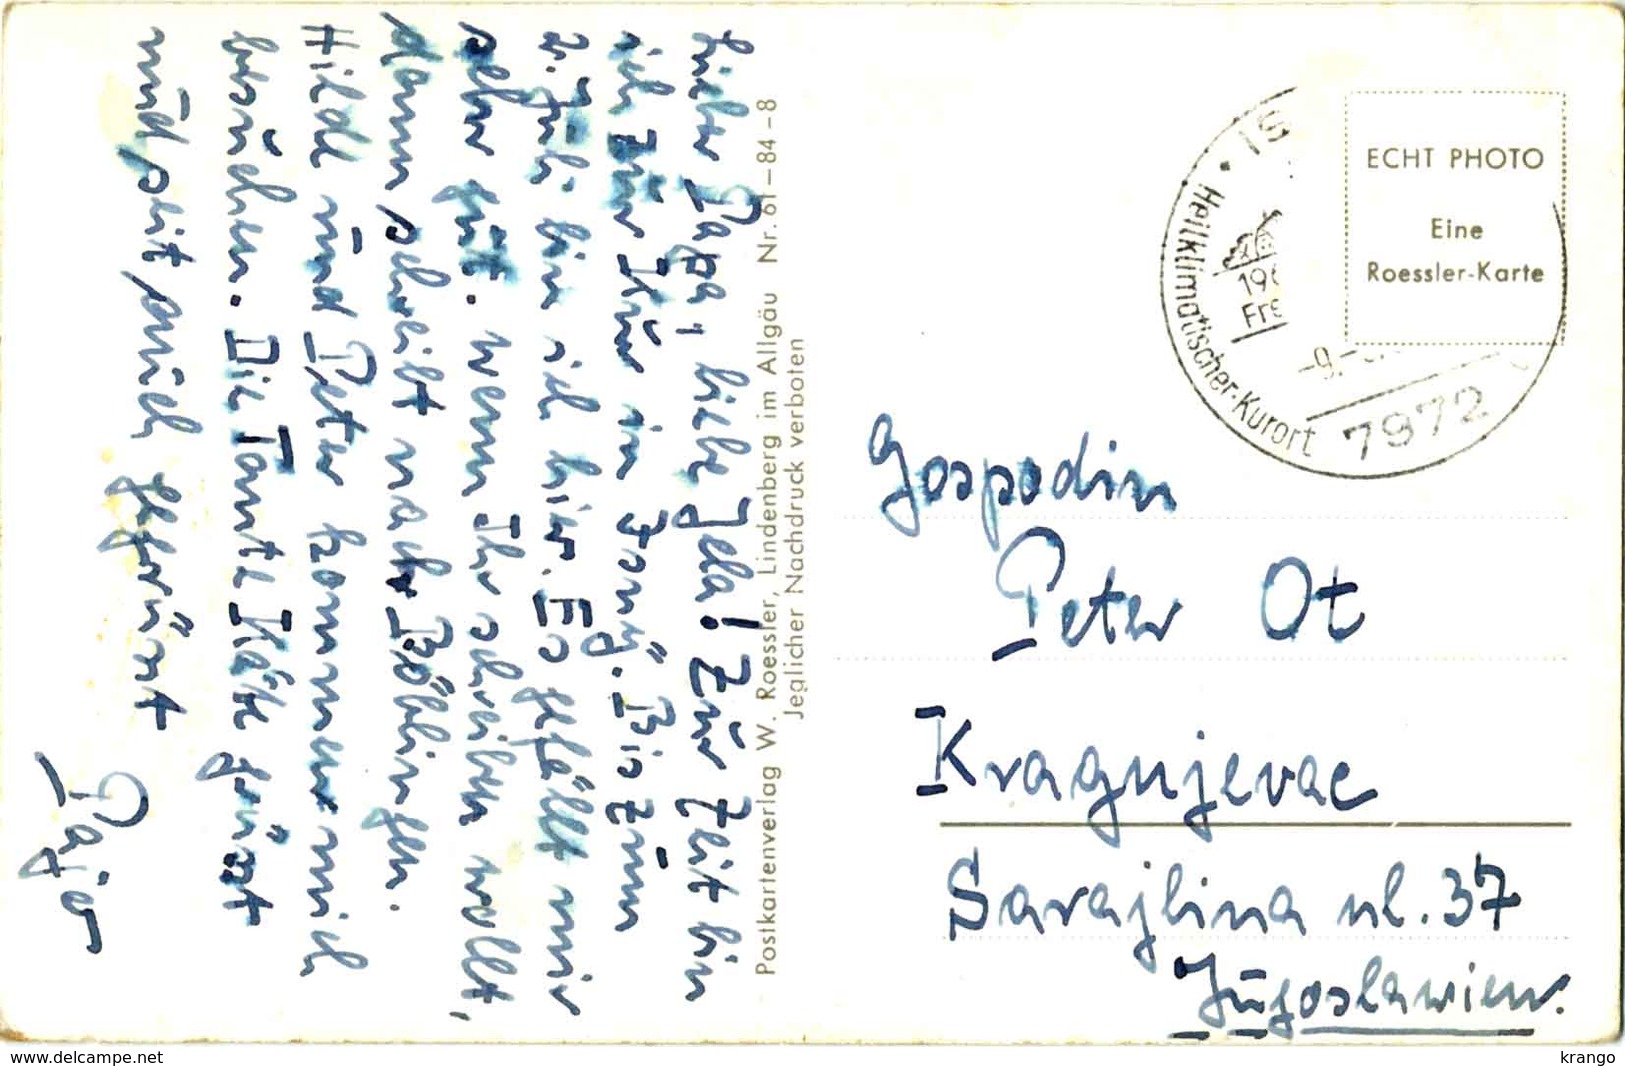 Lieber Papa, liebe Jela! Zur Zeit bin
ich zur Kur in Isny. Bis zum
2. Juli bin ich hier. Es gefällt mir
sehr gut. Wenn Ihr schreiben wollt,
dann schreibt nach Böblingen.
Hilde und Peter kommen mich
besuchen. Die Tante Käte grüsst
und seit auch gegrüßt
Pajo
Postkartenverlag W. Roessler, Lindenberg im Allgäu Nr. 61–84–8
Jeglicher Nachdruck verboten
ECHT PHOTO
Eine
Roessler-Karte
IS
Heilklimatischer-Kurort
7972
Gospodin
Peter Ot
Kragujevac
Sarajlina ul. 37
Jugoslawien.
www.delcampe.net
krango